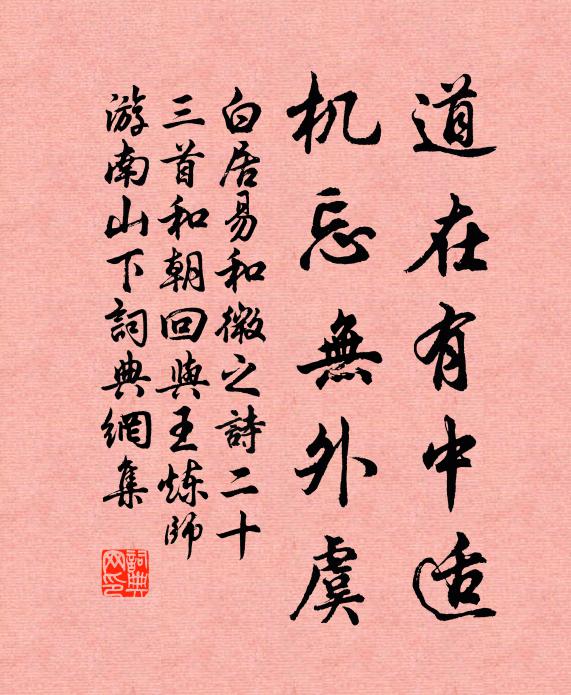 道在有中适
机忘無外虞
白居易和微之詩二十
三首和朝回與王炼師
游南山下詞典網集
詞典
网印